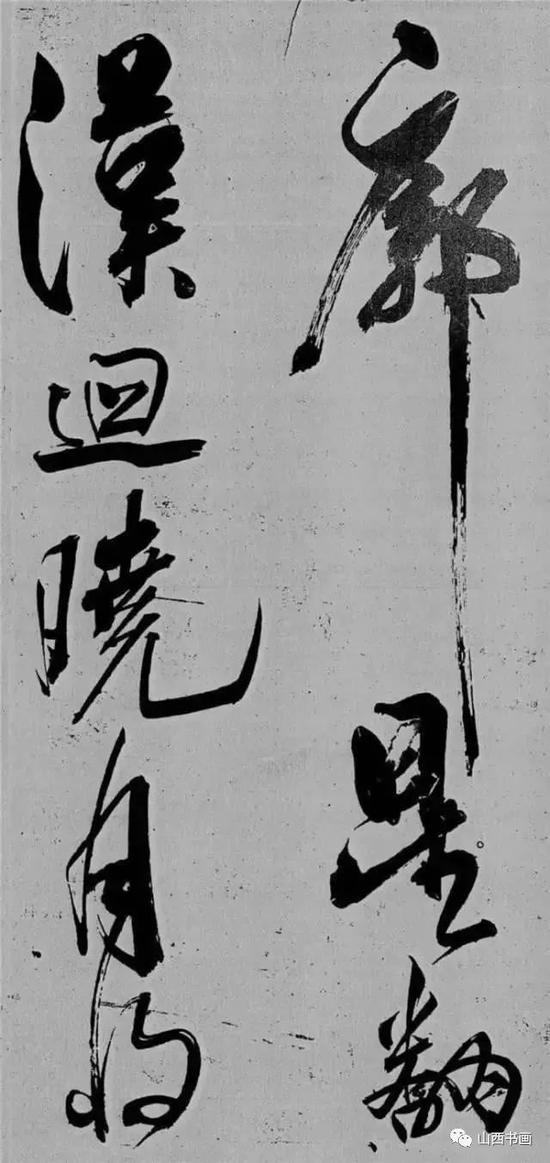 廓星翻
漢迴曉月將
山西书画